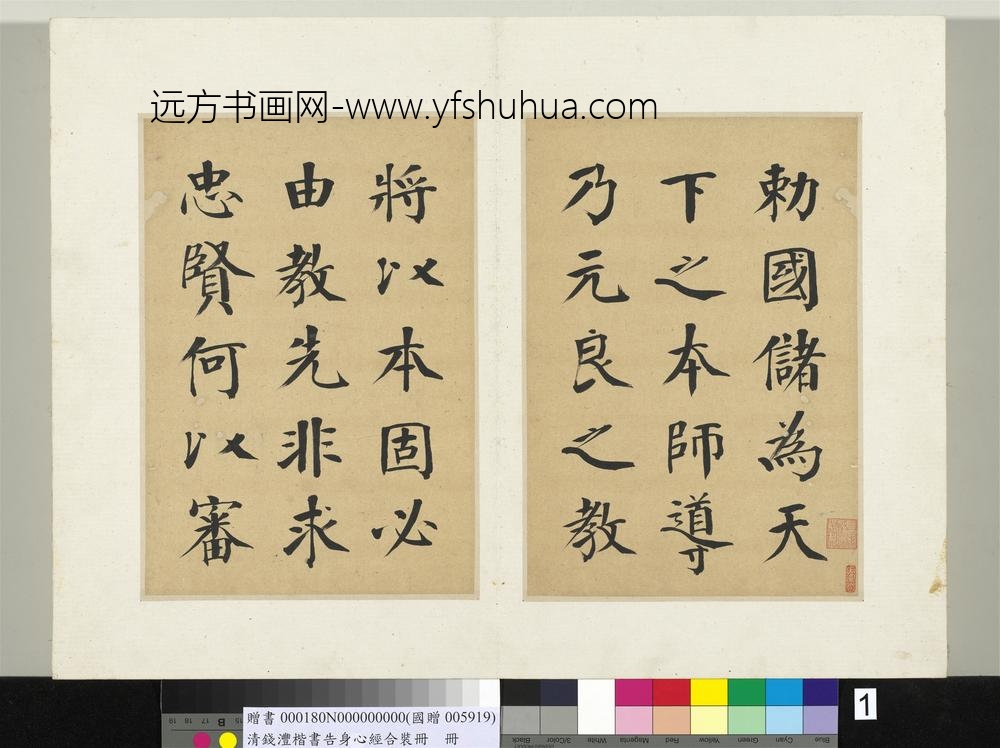 远方书画网-www.yfshuhua.com
勅國儲為天
下之本師導
乃元良之教
將以本固必
由教先非求
忠賢何以審
贈書 000180N000000000(國贈 005919)
清錢灃楷書告身心經合裝冊 冊
1
19 18 17 B 15
Black
3/Color
White
Magenta
Red
Yellow
Green
Cyan
Blue